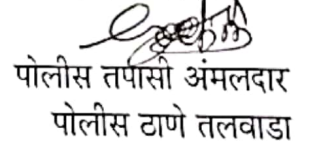 पोलीस तपासी अंमलदार
पोलीस ठाणे तलवाडा